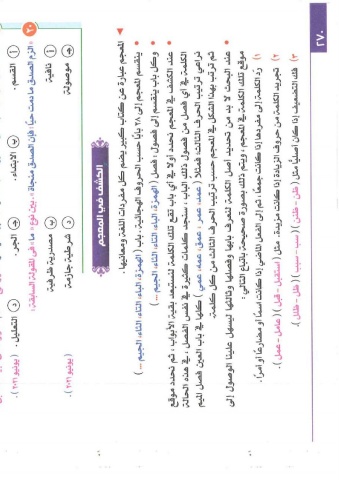 أ القسم. ب الابتداء. ج الجر د التعليل. (يونيو ٢٠٢١)
٢٠ «الزم الصدق ما دمت حيا؛ فإن الصدق منجاة».. بين نوع «ما» في المقولة السابقة:
أ نافية ب مصدرية ظرفية
ج موصولة د شرطية جازمة (يونيو ٢٠٢١)
الكشف في المعجم
المعجم عبارة عن كتاب كبير يضم كل مفردات اللغة ومعانيها.
ينقسم المعجم إلى ٢٨ بابًا حسب الحروف الهجائية، باب (الهمزة، الباء، التاء، الثاء، الجيم ...)
وكل باب ينقسم إلى فصول، فصل (الهمزة، الباء، التاء، الثاء، الجيم ...)
عند الكشف في المعجم نحدد أولا في أي باب تقع تلك الكلمة لنستبعد بقية الأبواب، ثم نحدد موقع
الكلمة في أي فصل من فصول ذلك الباب، سنجد كلمات كثيرة في نفس الفصل، في هذه الحالة
نراعي ترتيب الحرف الثالث فمثلا (عمد، عمر، عمق، عمه، عمي) كلها في باب العين فصل الميم
ثم ترتب بهذا الشكل في المعجم حسب ترتيب الحرف الثالث من كل كلمة.
عند البحث لا بد من تحديد أصل الكلمة لنعرف بابها وفصلها وثالثها ليسهل علينا الوصول إلى
موقع تلك الكلمة في المعجم، ويتم ذلك بصورة صحيحة باتباع التالي:
١) رد الكلمة إلى مفردها إذا كانت جمعا، ثم إلى الفعل الماضي إذا كانت اسما أو مضارعا أو أمرا.
٢) تجريد الكلمة من حروف الزيادة إذا كانت مزيدة مثل (استقبل - قبل) (عامل - عمل).
٣) فك التضعيف إذا كان أصليا مثل (ظن - ظنن) (سب - سبب) (ظل - ظلل).
٢٧٠